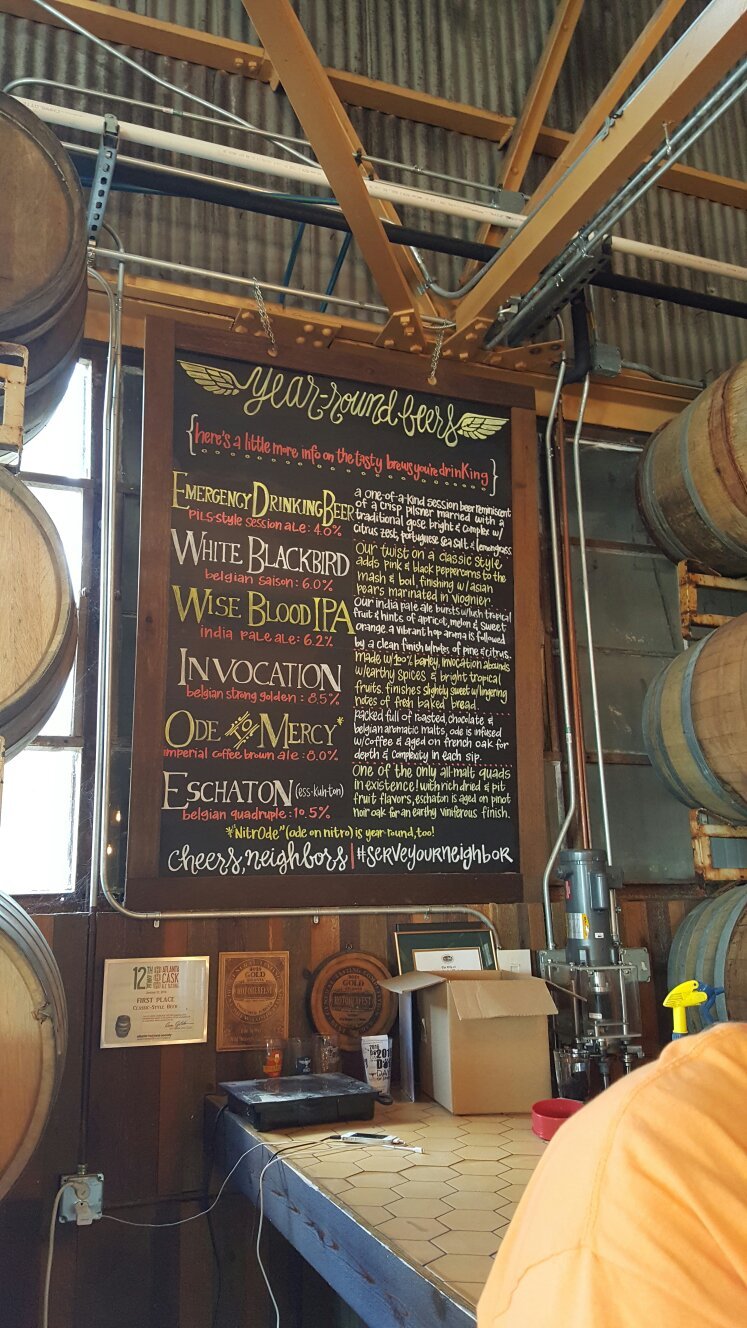 Year-round beers
{here's a little more info on the tasty brews you're drinking}
Emergency Drinking Beer
pils-style session ale: 4.0%
a one-of-a-kind session beer reminiscent
of a crisp pilsner married with a
traditional gose. bright & complex w/
citrus zest, portuguese sea salt & lemongrass
White Blackbird
belgian saison: 6.0%
Our twist on a classic style
adds pink & black peppercorns to the
mash & boil, finishing w/asian
pears marinated in viognier
Wise Blood IPA
india pale ale: 6.2%
Our india pale ale bursts w/lush tropical
fruit & hints of apricot, melon & sweet
orange. a vibrant hop aroma is followed
by a clean finish w/notes of pine & citrus.
Invocation
belgian strong golden: 8.5%
made w/100% barley, invocation abounds
w/earthy spices & bright tropical
fruits. finishes slightly sweet w/lingering
notes of fresh baked bread.
Ode to Mercy*
imperial coffee brown ale: 8.0%
packed full of roasted, chocolate &
belgian aromatic malts, ode is infused
w/coffee & aged on french oak for
depth & complexity in each sip.
Eschaton (ess-kuh-ton)
belgian quadruple: 10.5%
One of the only all-malt quads
in existence! with rich dried & pit
fruit flavors, eschaton is aged on pinot
noir oak for an earthy viniferous finish.
*"NitrOde" (ode on nitro) is year-round, too!
cheers, neighbors | #serveyourneighbor
12
ATLANTA
CASK
FIRST PLACE
Classic-Style Beer
GOLD
GOLD